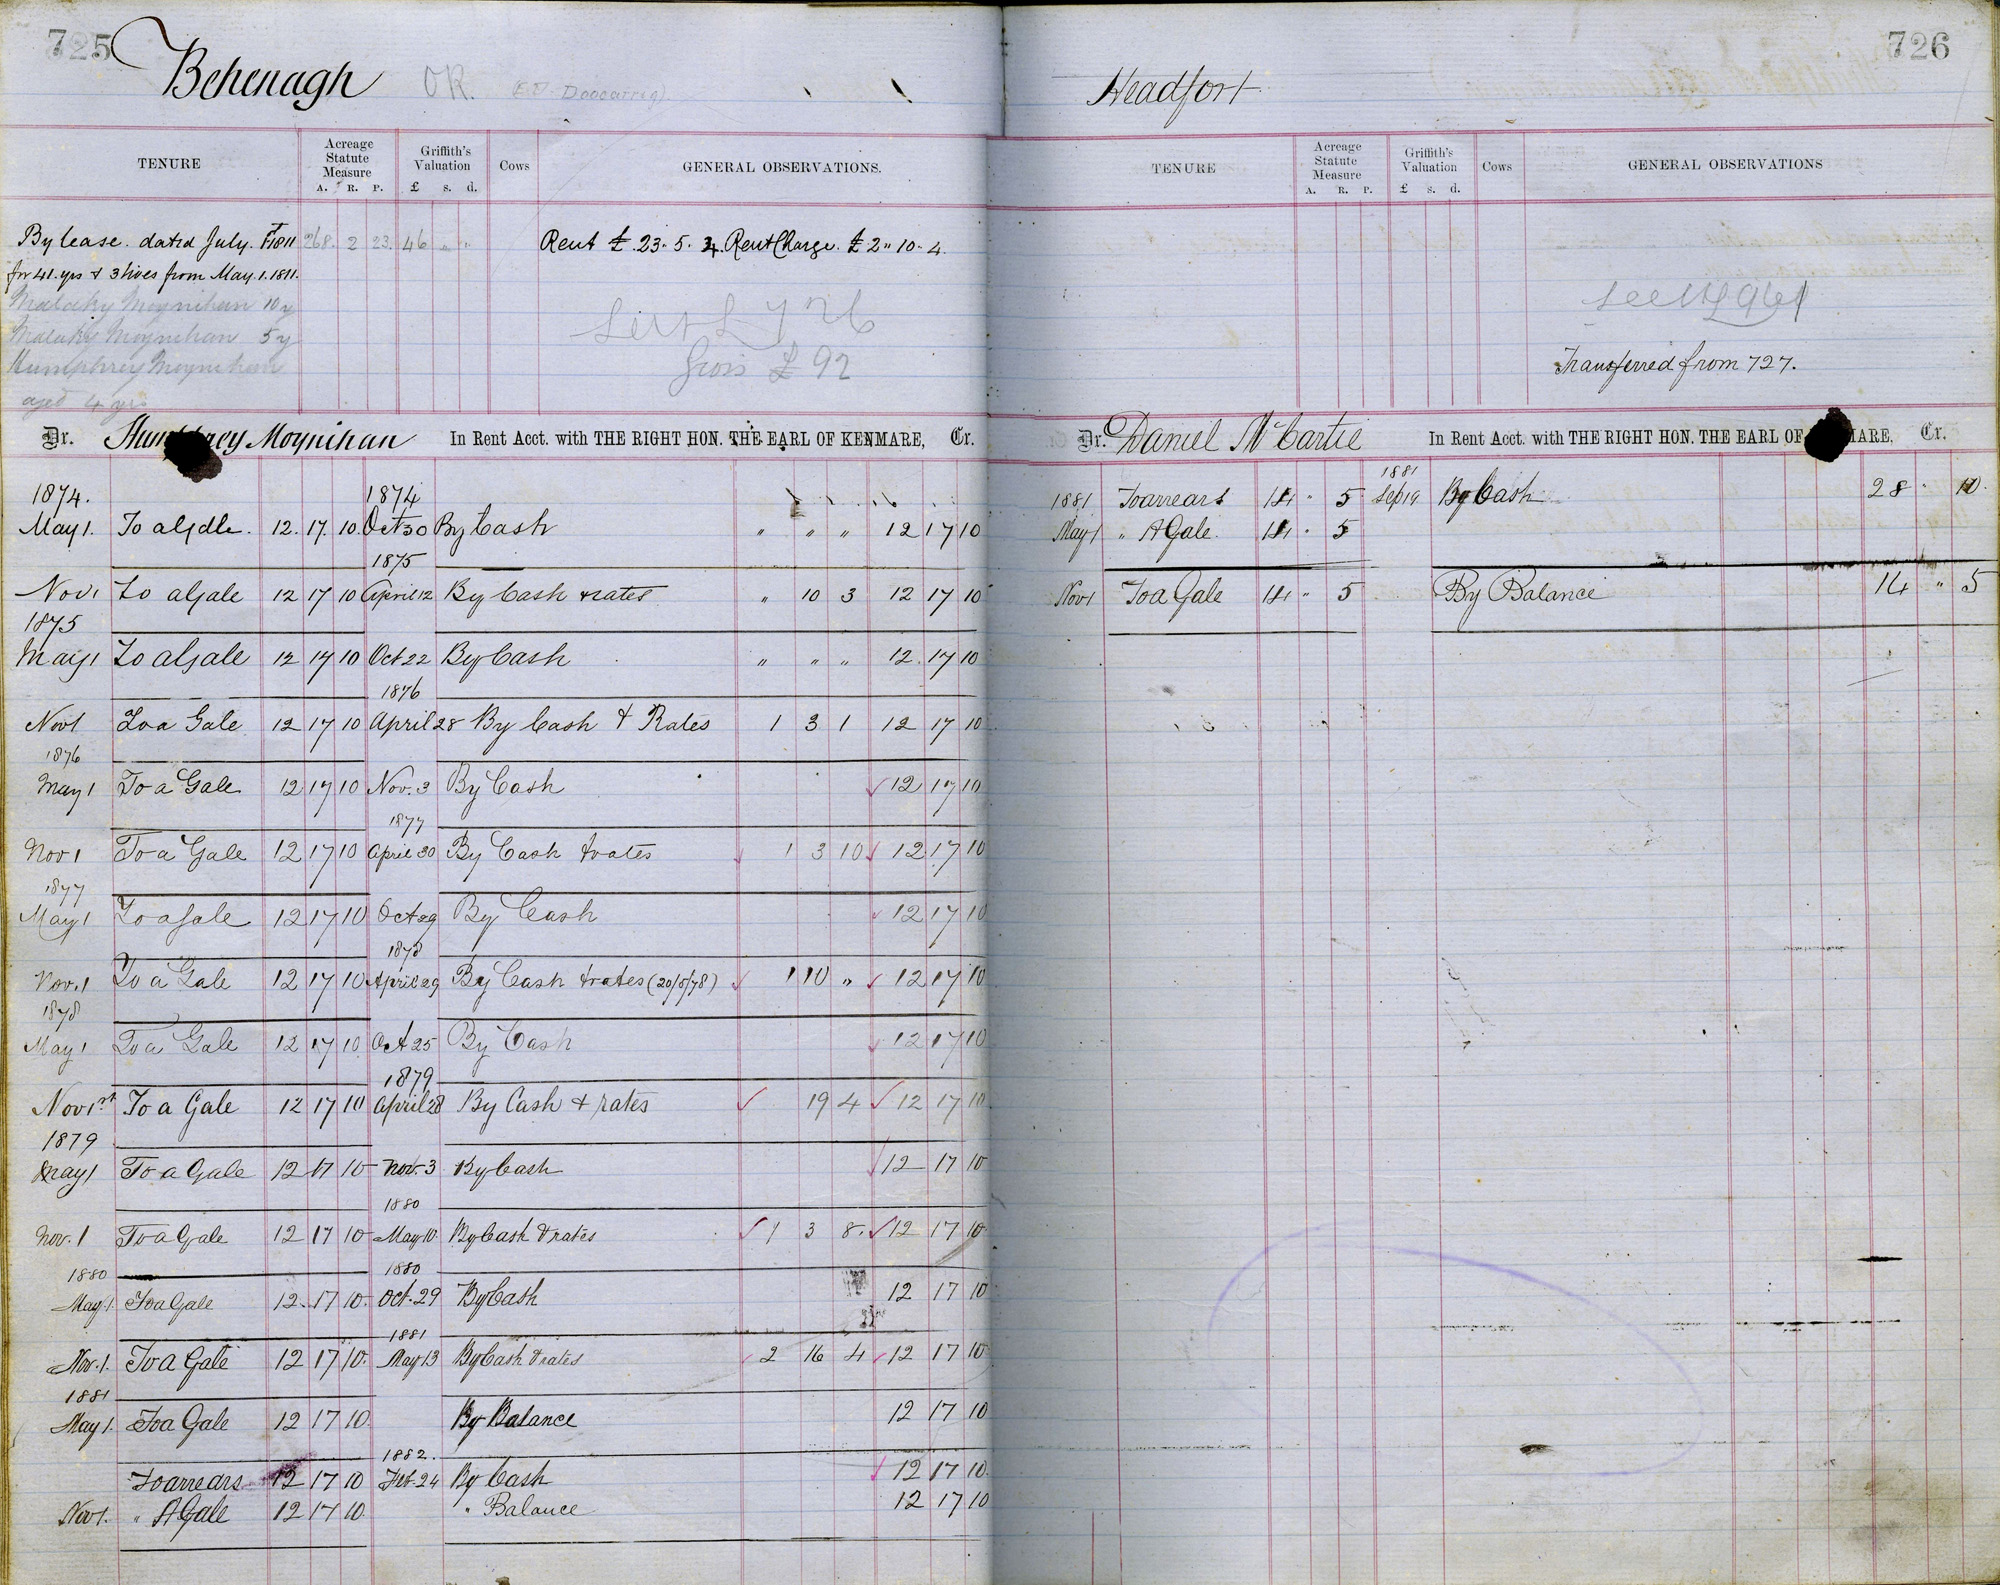 725
Behenagh OR.
TENURE Acreage Statute Measure A. R. P. Griffith's Valuation £ s. d. Cows GENERAL OBSERVATIONS.
By lease. dated July. 1811 268. 2 23. 46 " " Rent £.23.5.4. RentCharge. £2"10.4.
for 41.yrs & 3 lives from May.1.1811.
Malachy Moynihan 10 y
Malachy Moynihan 5 y
Humphrey Moynihan
aged 4 yrs
Gross £ 92
Dr. Humphrey Moynihan In Rent Acct. with THE RIGHT HON. THE EARL OF KENMARE, Cr.
1874. 1874
May 1. To a Gale. 12. 17. 10. Oct 30 By Cash " " " 12 17 10
1875
Nov 1 To a Gale 12 17 10 April 12 By Cash & rates " 10 3 12 17 10
1875
May 1 To a Gale 12 17 10 Oct 22 By Cash " " " 12. 17 10
1876
Nov 1 To a Gale 12 17 10 April 28 By Cash & Rates 1 3 1 12 17 10
1876
May 1 To a Gale 12 17 10 Nov. 3 By Cash ✓ 12 17 10
1877
Nov 1 To a Gale 12 17 10 April 30 By Cash & rates ✓ 1 3 10 ✓ 12 17 10
1877
May 1 To a Gale 12 17 10 Oct 29 By Cash ✓ 12 17 10
1878
Nov. 1 To a Gale 12 17 10 April 29 By Cash & rates (20/5/78) ✓ 1 10 " ✓ 12 17 10
1878
May 1 To a Gale 12 17 10 Oct 25 By Cash ✓ 12 17 10
1879
Nov 1st To a Gale 12 17 10 April 28 By Cash & rates ✓ 19 4 ✓ 12 17 10
1879
May 1 To a Gale 12 17 10 Nov. 3 By Cash ✓ 12 17 10
1880
Nov. 1 To a Gale 12 17 10 May 10 By Cash & rates ✓ 1 3 8. ✓ 12 17 10
1880 1880
May 1. To a Gale 12. 17 10. Oct. 29 By Cash 12 17 10
1881
Nov. 1. To a Gale 12 17 10. May 13 By Cash & rates ✓ 2 16 4 ✓ 12 17 10
1881
May 1. To a Gale 12 17 10. By Balance 12 17 10
1882.
To arrears 12 17 10 Feb. 24 By Cash ✓ 12 17 10
Nov 1. " A Gale 12 17 10. " Balance 12 17 10
726
Headfort
TENURE Acreage Statute Measure A. R. P. Griffith's Valuation £ s. d. Cows GENERAL OBSERVATIONS
Transferred from 727.
Dr. Daniel McCartie In Rent Acct. with THE RIGHT HON. THE EARL OF KENMARE, Cr.
1881
1881 To arrears 14 " 5 Sep 19 By Cash 28 " 10
May 1 " A Gale. 14 " 5
Nov 1 To a Gale 14 " 5 By Balance 14 " 5